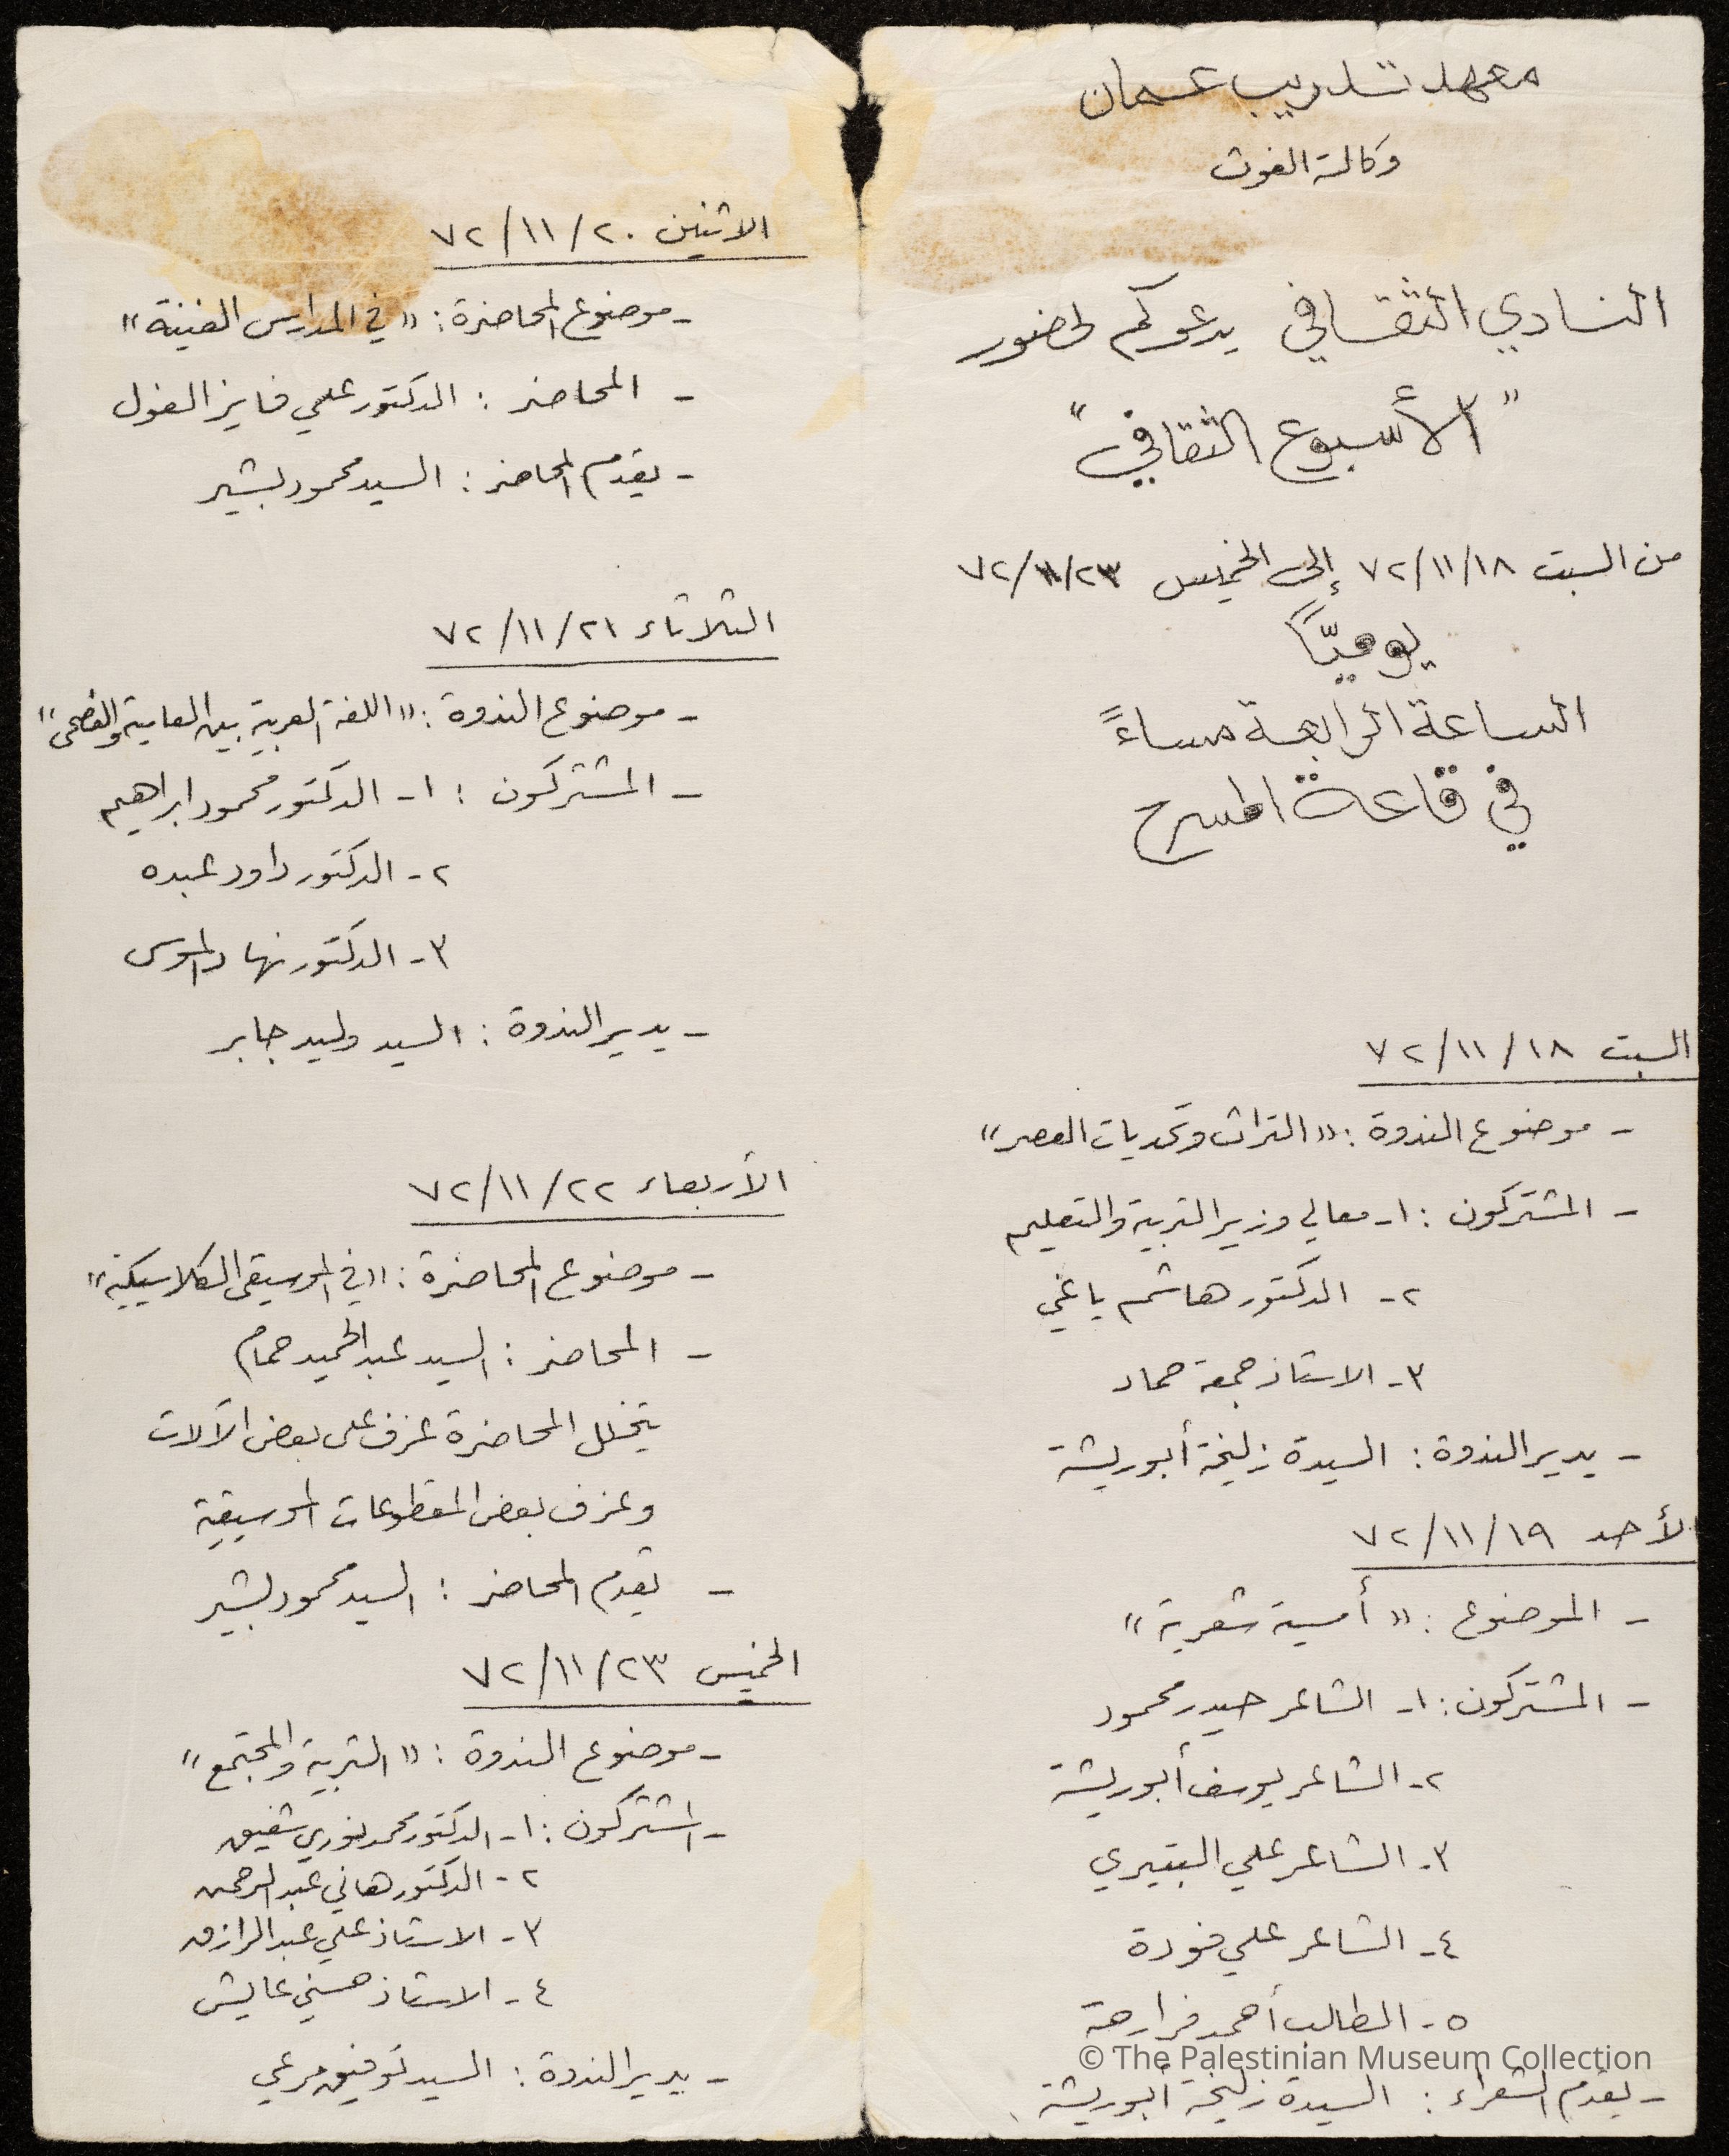 معهد تدريب عمان
وكالة الغوث
النادي الثقافي يدعوكم لحضور
"الأسبوع الثقافي"
من السبت ٧٢/١١/١٨ إلى الخميس ٧٢/١١/٢٣
يوميّاً
الساعة الرابعة مساءً
في قاعة المسرح
السبت ٧٢/١١/١٨
- موضوع الندوة : «التراث وتحديات العصر»
- المشتركون : ١- معالي وزير التربية والتعليم
٢- الدكتور هاشم ياغي
٣- الاستاذ جمعة حماد
- يدير الندوة : السيدة زليخة أبوريشة
الأحد ٧٢/١١/١٩
- الموضوع : «أمسية شعرية»
- المشتركون : ١- الشاعر حيدر محمود
٢- الشاعر يوسف أبوريشة
٣- الشاعر علي البتيري
٤- الشاعر علي فودة
٥- الطالب أحمد فرارحة
- يقدم الشعراء : السيدة زليخة أبوريشة
الاثنين ٧٢/١١/٢٠
- موضوع المحاضرة : «في المدارس الفنية»
- المحاضر : الدكتور علي فايز الغول
- يقدم المحاضر : السيد محمود بشير
الثلاثاء ٧٢/١١/٢١
- موضوع الندوة : «اللغة العربية بين العامية والفصحى»
- المشتركون : ١- الدكتور محمود ابراهيم
٢- الدكتور داود عبده
٣- الدكتور نهاد الموسى
- يدير الندوة : السيد وليد جابر
الأربعاء ٧٢/١١/٢٢
- موضوع المحاضرة : «في الموسيقى الكلاسيكية»
- المحاضر : السيد عبد الحميد حمام
يتخلل المحاضرة عزف على بعض الآلات
وعزف بعض المقطوعات الموسيقية
- يقدم المحاضر : السيد محمود بشير
الخميس ٧٢/١١/٢٣
- موضوع الندوة : «التربية والمجتمع»
- المشتركون : ١- الدكتور محمد نوري شفيق
٢- الدكتور هاني عبد الرحمن
٣- الاستاذ علي عبد الرازق
٤- الاستاذ حسني عايش
- يدير الندوة : السيد توفيق مرعي
© The Palestinian Museum Collection